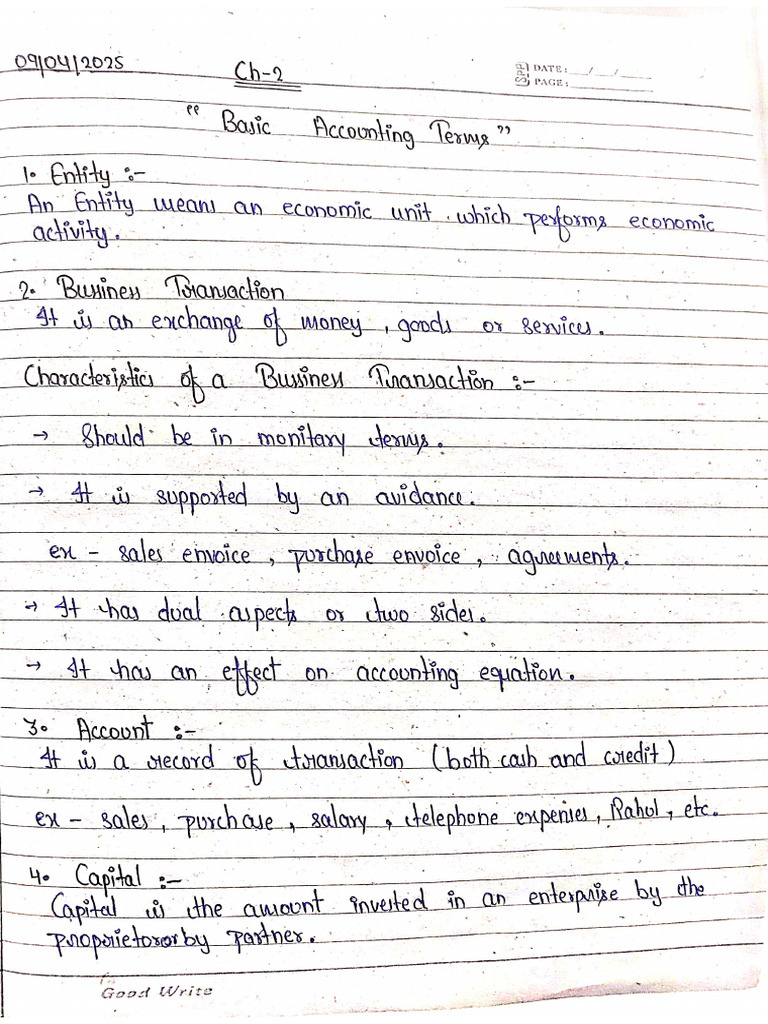 09/04/2025
Ch-2
SPP DATE: __/__/__
PAGE: ________
"Basic Accounting Terms"
1. Entity :-
An Entity means an economic unit which performs economic
activity.
2. Bussiness Transaction
It is an exchange of money, goods or services.
Characteristics of a Bussiness Transaction :-
→ Should be in monitary terms.
→ It is supported by an avidance.
ex - sales envoice, purchase envoice, agreements.
→ It has dual aspects or two sides.
→ It has an effect on accounting equation.
3. Account :-
It is a record of transaction (both cash and credit)
ex - sales, purchase, salary, telephone expenses, Rahul, etc.
4. Capital :-
Capital is the amount invested in an enterprise by the
proprietor or by partner.
Good Write